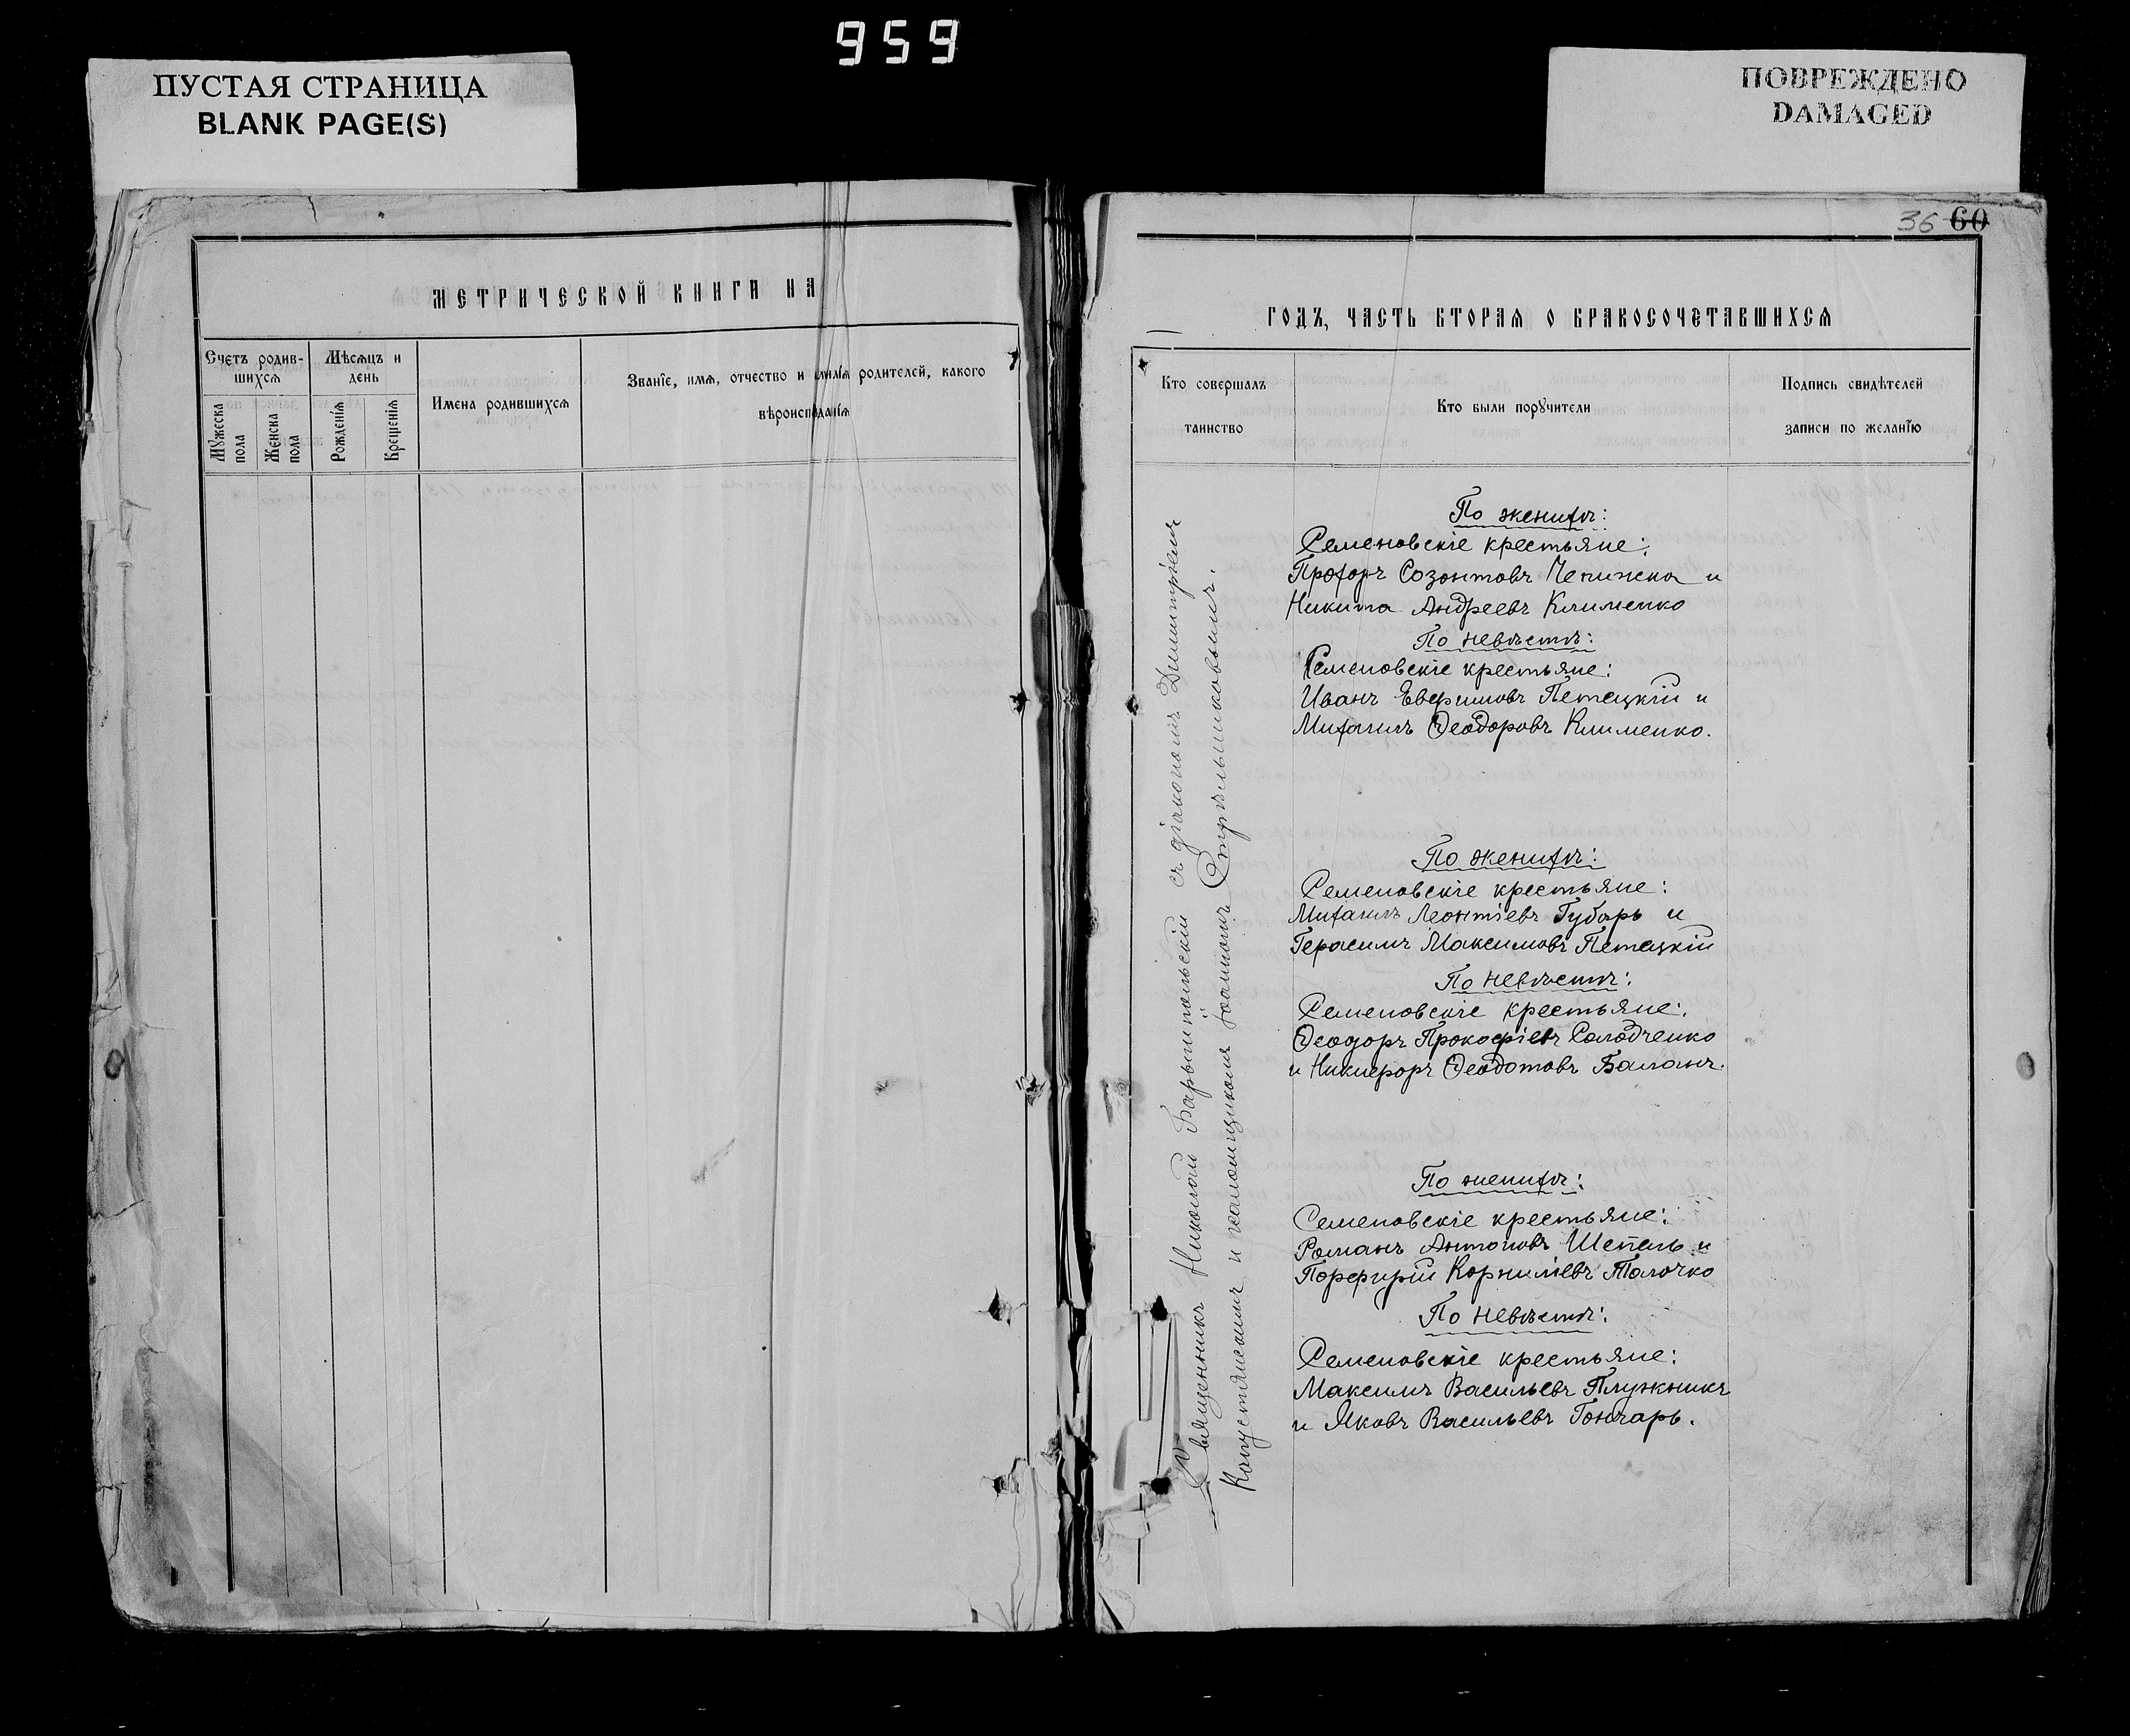 959
ПУСТАЯ СТРАНИЦА
BLANK PAGE(S)
ПОВРЕЖДЕНО
DAMAGED
МЕТРИЧЕСКОЙ КНИГИ НА
Счетъ родив-
шихся
Мѣсяцъ и
день
Имена родившихся
Званіе, имя, отчество и фамилія родителей, какого
вѣроисповѣданія
Мужеска
пола
Женска
пола
Рожденія
Крещенія
36 60
ГОДЪ, ЧАСТЬ ВТОРАЯ О БРАКОСОЧЕТАВШИХСЯ
Кто совершалъ
таинство
Кто были поручители
Подпись свидѣтелей
записи по желанію
Священникъ Николай Барышпольскій съ діакономъ Димитріемъ
Капустянскимъ и псаломщикомъ Іоанномъ Стрѣльниковымъ.
По женихѣ:
Семеновскіе крестьяне:
Прохоръ Созонтовъ Чепижка и
Никита Андреевъ Клименко
По невѣстѣ:
Семеновскіе крестьяне:
Иванъ Евфимовъ Петецкій и
Михаилъ Ѳеодоровъ Клименко.
По женихѣ:
Семеновскіе крестьяне:
Михаилъ Леонтіевъ Губарь и
Герасимъ Максимовъ Петецкій
По невѣстѣ:
Семеновскіе крестьяне:
Ѳеодоръ Прокофіевъ Солодченко
и Никифоръ Ѳеодотовъ Баланъ.
По женихѣ:
Семеновскіе крестьяне:
Романъ Антоновъ Шепель и
Порфирій Корниліевъ Толочко
По невѣстѣ:
Семеновскіе крестьяне:
Максимъ Васильевъ Плужникъ
и Яковъ Васильевъ Гончарь.